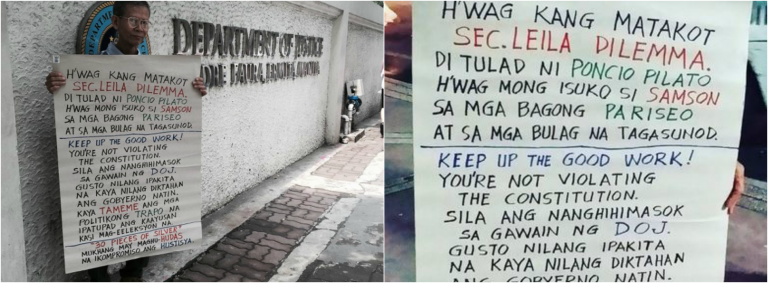 DEPARTMENT OF JUSTICE
H'WAG KANG MATAKOT
SEC. LEILA DILEMMA.
DI TULAD NI PONCIO PILATO
HWAG MONG ISUKO SI SAMSON
SA MGA BAGONG PARISEO
AT SA MGA BULAG NA TAGASUNOD.
KEEP UP THE GOOD WORK!
YOU'RE NOT VIOLATING
THE CONSTITUTION.
SILA ANG NANGHIHIMASOK
SA GAWAIN NG DOJ.
GUSTO NILANG IPAKITA
NA KAYA NILANG DIKTAHAN
ANG GOBYERNO NATIN.
KAYA TAMEME ANG MGA
POLITIKONG TRAPO NA
IPATUPAD ANG KAAYUSAN
KASI MAG-EELEKSYON NA
"30 PIECES OF SILVER"
MUKHANG MAY MAGHU-HUDAS
NA IKOMPROMISO ANG HUSTISYA
H'WAG KANG MATAKOT
SEC. LEILA DILEMMA.
DI TULAD NI PONCIO PILATO
H'WAG MONG ISUKO SI SAMSON
SA MGA BAGONG PARISEO
AT SA MGA BULAG NA TAGASUNOD.
KEEP UP THE GOOD WORK!
YOU'RE NOT VIOLATING
THE CONSTITUTION.
SILA ANG NANGHIHIMASOK
SA GAWAIN NG DOJ.
GUSTO NILANG IPAKITA
NA KAYA NILANG DIKTAHAN
ANG GOBYERNO NATIN.